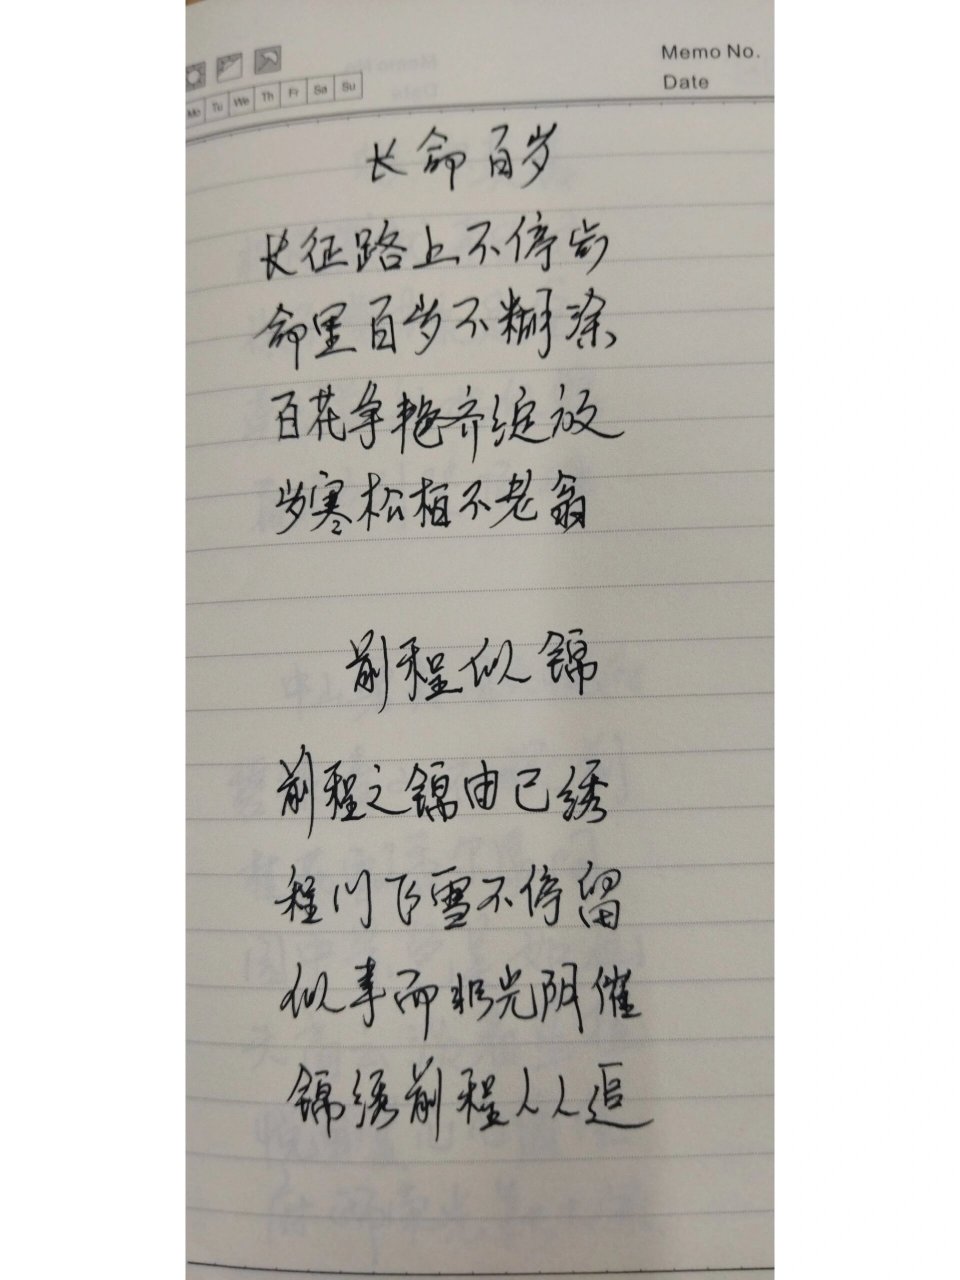 Memo No.
Mo Tu We Th Fr Sa Su
Date
长命百岁
长征路上不停歩
命里百岁不糊涂
百花争艳齐绽放
岁寒松柏不老翁
前程似锦
前程之锦由己绣
程门飞雪不停留
似事而非光阴催
锦绣前程人人追